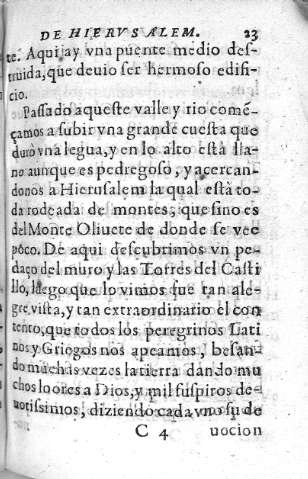 DE HIERVSALEM. 23
te. Aqui ay vna puente medio des-
truida, que deuio ser hermoso edifi-
cio.
Passado aqueste valle y rio comé-
çamos a subir vna grande cuesta que
duró vna legua, y en lo alto está lla-
no aunque es pedregoso, y acercan-
donos a Hierusalem la qual está to-
da rodeada de montes, que sino es
del Monte Oliuete de donde se vee
póco. De aqui descubrimos vn pe-
daço del muro y las Torres del Casti
llo, luego que lo vimos fue tan ale-
gre vista, y tan extraordinario el con
tento, que todos los peregrinos Lati
nos y Griegos nos apeamos, besan-
do muchas vezes la tierra dando mu
chos loores a Dios, y mil suspiros de-
uotissimos, diziendo cada vno su de
C 4 uocion